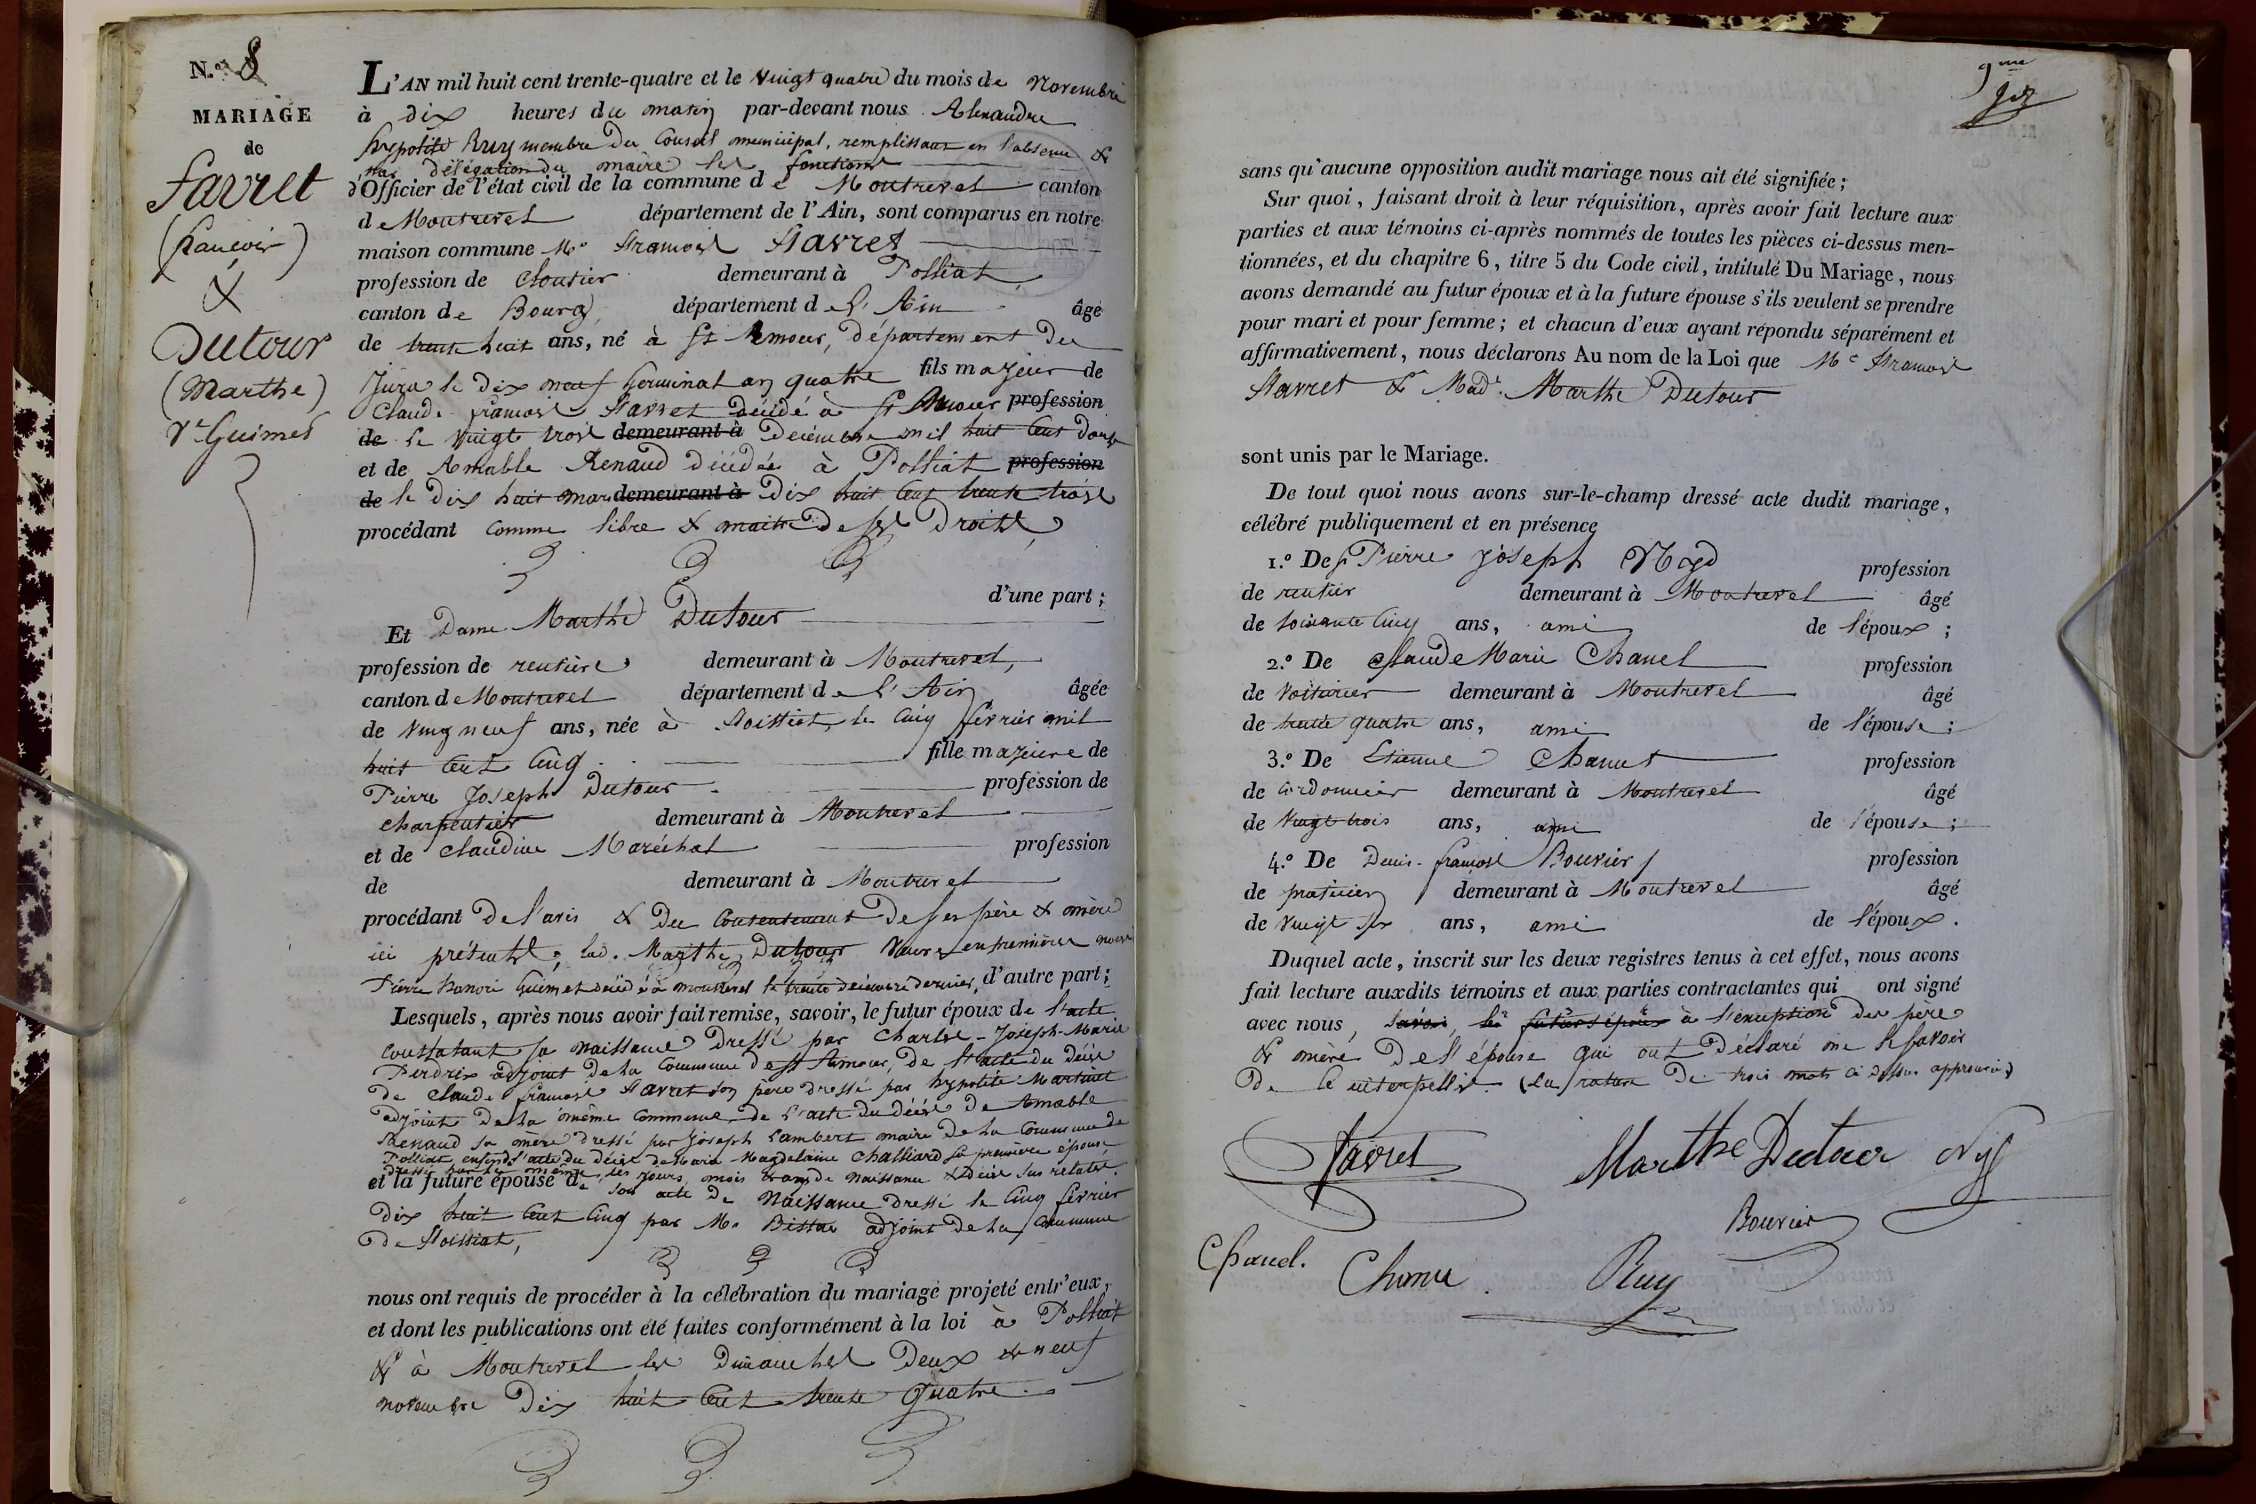 N.° 8
MARIAGE
de
Favret
(francois)
&
Dutour
(Marthe)
Ve Guimet
L'AN mil huit cent trente-quatre et le vingt quatre du mois de Novembre
à dix heures du matin par-devant nous Alexandre
hypolite Ruy membre du Conseil municipal, remplissant en l'absence &
par délégation du maire les fonctions
d'Officier de l'état civil de la commune de Montrevel canton
de Montrevel département de l'Ain, sont comparus en notre
maison commune Mr francois Favret
profession de cloutier demeurant à Polliat,
canton de Bourg, département de l'Ain âgé
de trente huit ans, né à St Amour, département du
Jura le dix neuf Germinal an quatre fils majeur de
Claude francois Favret décédé à St Amour profession
de le vingt trois demeurant à Décembre mil huit cent douze
et de Amable Renaud décédée à Polliat profession
de le dix huit mars demeurant à dix huit cent trente trois
procédant comme libre & maitre de ses droits,
d'une part;
Et Dame Marthe Dutour
profession de rentière demeurant à Montrevel,
canton de Montrevel département de l'Ain âgée
de vingt neuf ans, née à Foissiat, le cinq février mil
huit cent cinq fille majeure de
Pierre Joseph Dutour profession de
charpentier demeurant à Montrevel
et de Claudine Maréchal profession
de demeurant à Montrevel
procédant de l'avis & du consentement de ses père & mère
ici présents; lad. Marthe Dutour veuve en premières noces
Pierre honoré Guimet décédé à Montrevel le trente décembre dernier, d'autre part;
Lesquels, après nous avoir fait remise, savoir, le futur époux de l'acte
constatant sa naissance dressé par Charles-Joseph-Marie
Perdrix adjoint de la Commune de St Amour, de l'acte du décès
de Claude francois Favret son père dressé par hypolite Martinet
adjoint de la même commune, de l'acte du décès de Amable
Renaud sa mère dressé par Joseph Lambert maire de la Commune de
Polliat, enfin de l'acte du décès de Marie Magdelaine Challiard sa première épouse
dressé par le même, les jours, mois & an de naissance & décès sus relatés.
et la future épouse de son acte de naissance dressé le cinq février
dix huit cent cinq par Mr adjoint de la Commune
de Foissiat,
nous ont requis de procéder à la célébration du mariage projeté entr'eux,
et dont les publications ont été faites conformément à la loi à Polliat
& à Montrevel les dimanches deux & neuf
novembre dix huit cent trente quatre.
9me
sans qu'aucune opposition audit mariage nous ait été signifiée;
Sur quoi, faisant droit à leur réquisition, après avoir fait lecture aux
parties et aux témoins ci-après nommés de toutes les pièces ci-dessus men-
tionnées, et du chapitre 6, titre 5 du Code civil, intitulé Du Mariage, nous
avons demandé au futur époux et à la future épouse s'ils veulent se prendre
pour mari et pour femme; et chacun d'eux ayant répondu séparément et
affirmativement, nous déclarons Au nom de la Loi que Mr francois
Favret & Made Marthe Dutour
sont unis par le Mariage.
De tout quoi nous avons sur-le-champ dressé acte dudit mariage,
célébré publiquement et en présence
1.° De Sr Pierre Joseph profession
de rentier demeurant à Montrevel âgé
de soixante cinq ans, ami de l'époux;
2.° De Claude Marie Chanel profession
de voiturier demeurant à Montrevel âgé
de trente quatre ans, ami de l'épouse;
3.° De Etienne Chanut profession
de Cordonnier demeurant à Montrevel âgé
de vingt trois ans, ami de l'épouse;
4.° De Denis-francois Bouvier profession
de praticien demeurant à Montrevel âgé
de vingt six ans, ami de l'époux.
Duquel acte, inscrit sur les deux registres tenus à cet effet, nous avons
fait lecture auxdits témoins et aux parties contractantes qui ont signé
avec nous, savoir, les futurs époux à l'exception des père
& mère de l'épouse qui ont déclaré ne le savoir
de ce interpellés. (la rature de trois mots ci dessus approuvée)
Favret Marthe Dutour
Bouvier
Chanel. Chanu Ruy